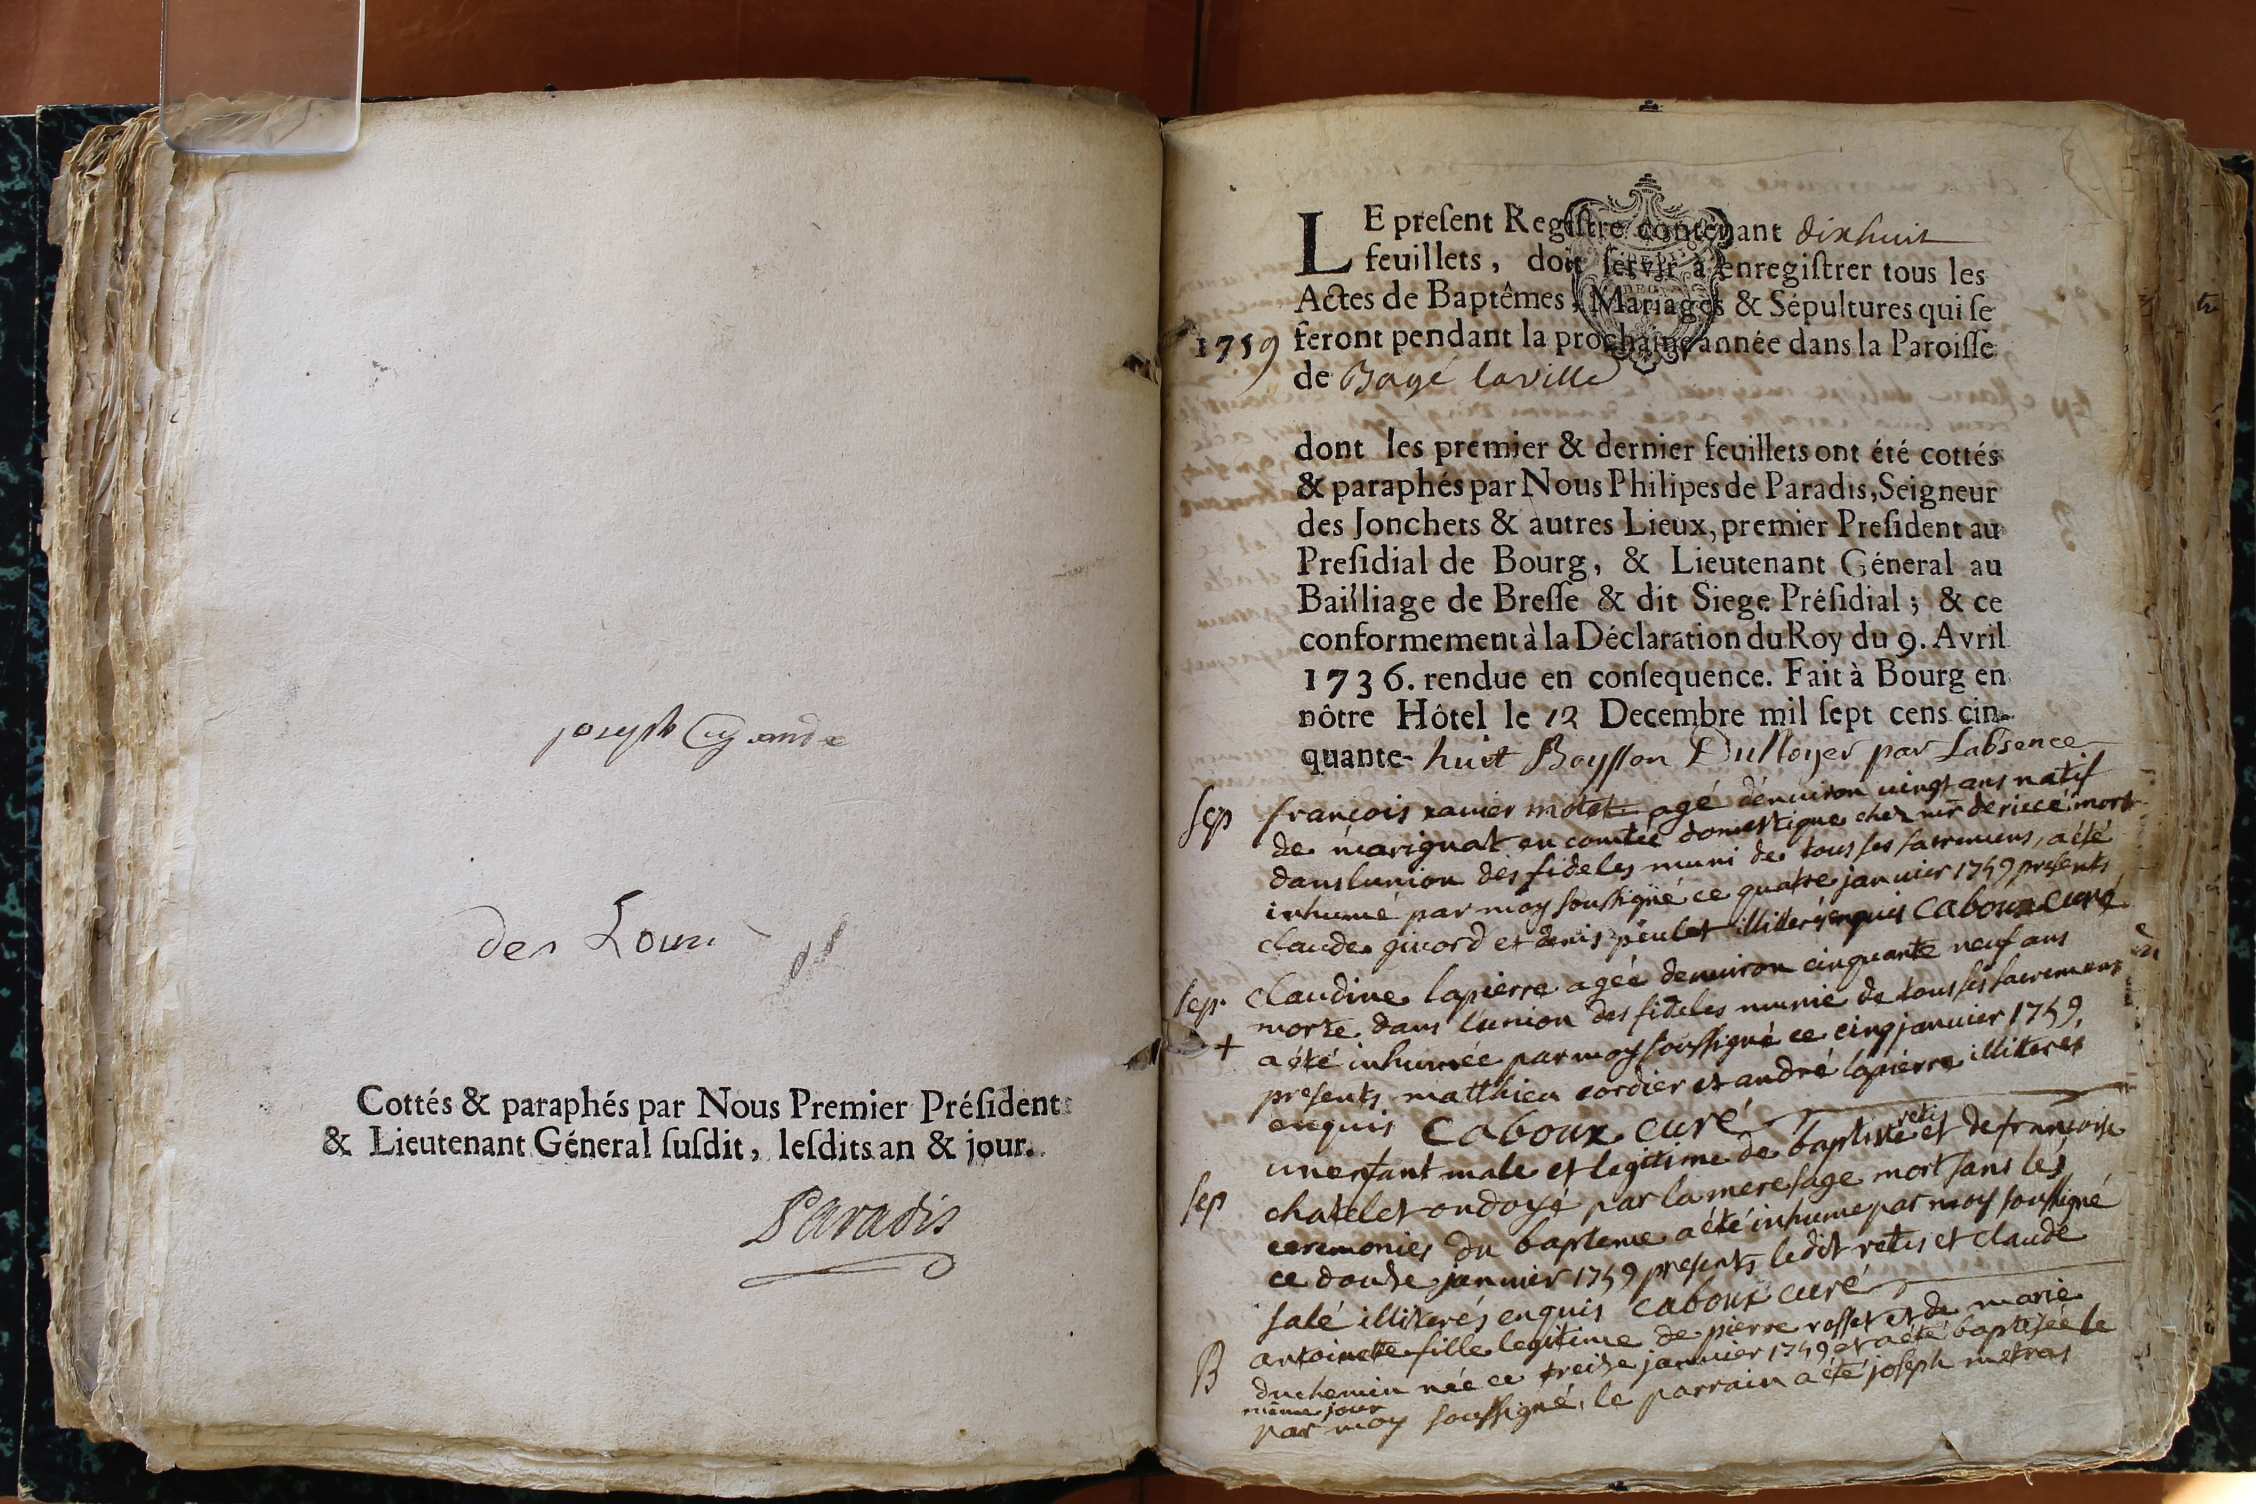 joseph
des
Cottés & paraphés par Nous Premier Préſident
& Lieutenant Géneral ſuſdit, leſdits an & jour.
Paradis
LE preſent Regiſtre contenant dixhuit
feuillets, doit ſervir à enregiſtrer tous les
Actes de Baptêmes, Mariages & Sépultures qui ſe
1759 feront pendant la prochaine année dans la Paroiſſe
de Bagé laville
dont les premier & dernier feuillets ont été cottés
& paraphés par Nous Philipes de Paradis, Seigneur
des Jonchets & autres Lieux, premier Preſident au
Preſidial de Bourg, & Lieutenant Géneral au
Bailliage de Breſſe & dit Siege Préſidial; & ce
conformement à la Déclaration du Roy du 9. Avril
1736. rendue en conſequence. Fait à Bourg en
nôtre Hôtel le 12 Decembre mil ſept cens cin-
quante- huit par Labsence
sep françois xavier motet agé denviron vingt ans natif
de marignat en comté domestique chez mr mort
dans lunion des fideles muni de tous ses sacremens, a été
inhumé par moy soussigné ce quatre janvier 1759 presents
claude givord et denis illiterés enquis caboux curé
sep. claudine lapierre agée denviron cinquante neuf ans
morte dans lunion des fideles munie de tous ses sacremens
+ a été inhumée par moy soussigné ce cinq janvier 1759,
presents matthieu cordier et andré lapierre illiteres
enquis caboux curé
un enfant male et legitime de baptiste retis et de francoise
sep chatelet ondoyé par la mere sage mort sans les
ceremonies du bapteme a été inhume par moy soussigné
ce douze janvier 1759 presents ledit retis et claude
salé illiterés enquis caboux curé
B antoinette fille legitime de pierre rosset et de marie
duchemin née ce treize janvier 1759 et a été baptisée le
même jour
par moy soussigné, le parrain a été joseph metras